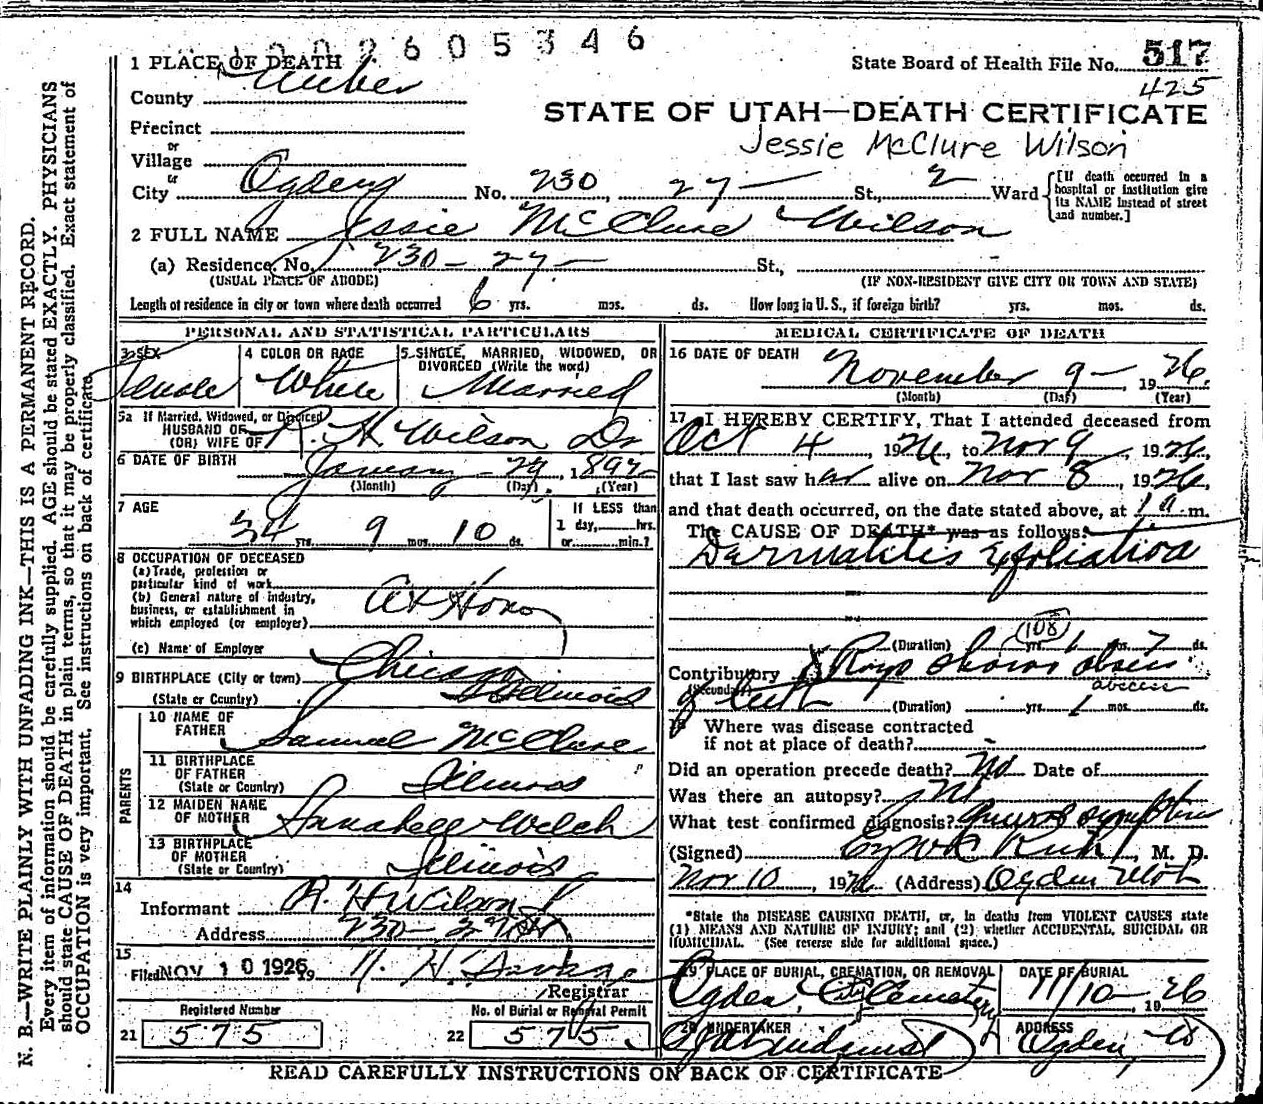 1002605346
1 PLACE OF DEATH
State Board of Health File No. 517
425
County Weber
STATE OF UTAH—DEATH CERTIFICATE
Precinct
Jessie McClure Wilson
or
Village
or
City Ogden No. 230 27 St., 2 Ward
[If death occurred in a hospital or institution give its NAME instead of street and number.]
2 FULL NAME Jessie McClure Wilson
(a) Residence, No. 230-27- St.,
(USUAL PLACE OF ABODE) (IF NON-RESIDENT GIVE CITY OR TOWN AND STATE)
Length of residence in city or town where death occurred 6 yrs. mos. ds. How long in U.S., if foreign birth? yrs. mos. ds.
PERSONAL AND STATISTICAL PARTICULARS
3 SEX
Female
4 COLOR OR RACE
White
5 SINGLE, MARRIED, WIDOWED, OR
DIVORCED (Write the word)
Married
5a If Married, Widowed, or Divorced
HUSBAND OF
(OR) WIFE OF R. H. Wilson Dr
6 DATE OF BIRTH January 29, 1892
(Month) (Day) (Year)
7 AGE
34 yrs. 9 mos. 10 ds.
If LESS than
1 day, hrs.
or min.?
8 OCCUPATION OF DECEASED
(a) Trade, profession or
particular kind of work
(b) General nature of industry,
business, or establishment in
which employed (or employer)
At Home
(c) Name of Employer
9 BIRTHPLACE (City or town) Chicago
(State or Country) Illinois
PARENTS
10 NAME OF
FATHER Samuel McClure
11 BIRTHPLACE
OF FATHER
(State or Country) Illinois
12 MAIDEN NAME
OF MOTHER Annabell Welch
13 BIRTHPLACE
OF MOTHER
(State or Country) Illinois
14
Informant R. H. Wilson
Address 230
15
Filed NOV 10 1926 19
Registrar
Registered Number
21 575
No. of Burial or Removal Permit
22 575
MEDICAL CERTIFICATE OF DEATH
16 DATE OF DEATH
November 9 1926
(Month) (Day) (Year)
17 I HEREBY CERTIFY, That I attended deceased from
Oct 4, 1926, to Nov 9, 1926,
that I last saw her alive on Nov 8, 1926,
and that death occurred, on the date stated above, at 1 a m.
The CAUSE OF DEATH* was as follows:
Dermatitis Exfoliativa
108
(Duration) yrs. 1 mos. 7 ds.
Contributory X Rays shows absess
(Secondary)
of teeth
abscess
(Duration) yrs. 1 mos. ds.
18 Where was disease contracted
if not at place of death? -
Did an operation precede death? No Date of
Was there an autopsy? No
What test confirmed diagnosis?
(Signed) M. D.
Nov 10, 1926 (Address) Ogden Utah
*State the DISEASE CAUSING DEATH, or, in deaths from VIOLENT CAUSES state
(1) MEANS AND NATURE OF INJURY; and (2) whether ACCIDENTAL, SUICIDAL OR
HOMICIDAL. (See reverse side for additional space.)
19 PLACE OF BURIAL, CREMATION, OR REMOVAL
Ogden City Cemetery
DATE OF BURIAL
11/10 1926
20 UNDERTAKER
ADDRESS
Ogden, U
READ CAREFULLY INSTRUCTIONS ON BACK OF CERTIFICATE
N. B.—WRITE PLAINLY WITH UNFADING INK—THIS IS A PERMANENT RECORD.
Every item of information should be carefully supplied. AGE should be stated EXACTLY. PHYSICIANS
should state CAUSE OF DEATH in plain terms, so that it may be properly classified. Exact statement of
OCCUPATION is very important. See instructions on back of certificate.